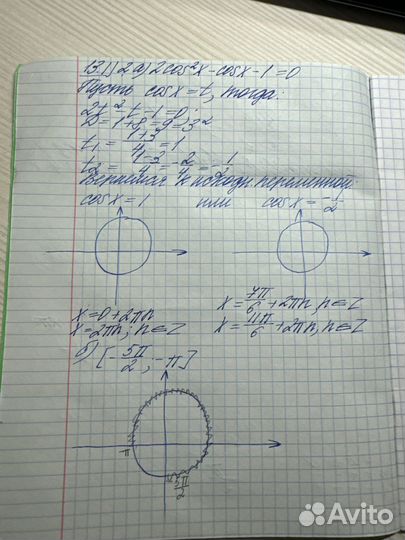 13.1) 2 а) 2cos²x - cosx - 1 = 0
Пусть cosx = t, тогда:
2t² - t - 1 = 0;
D = 1 + 8 = 9 = 3²
t₁ = (1+3)/4 = 1
t₂ = (1-3)/4 = -2/4 = -1/2
Вернёмся к исходн переменной
cosx = 1 или cosx = -1/2
x = 0 + 2πn
x = 2πn; n ∈ Z
x = 7π/6 + 2πn, n ∈ Z
x = 11π/6 + 2πn, n ∈ Z
б) [-5π/2; -π]
-π
Avito